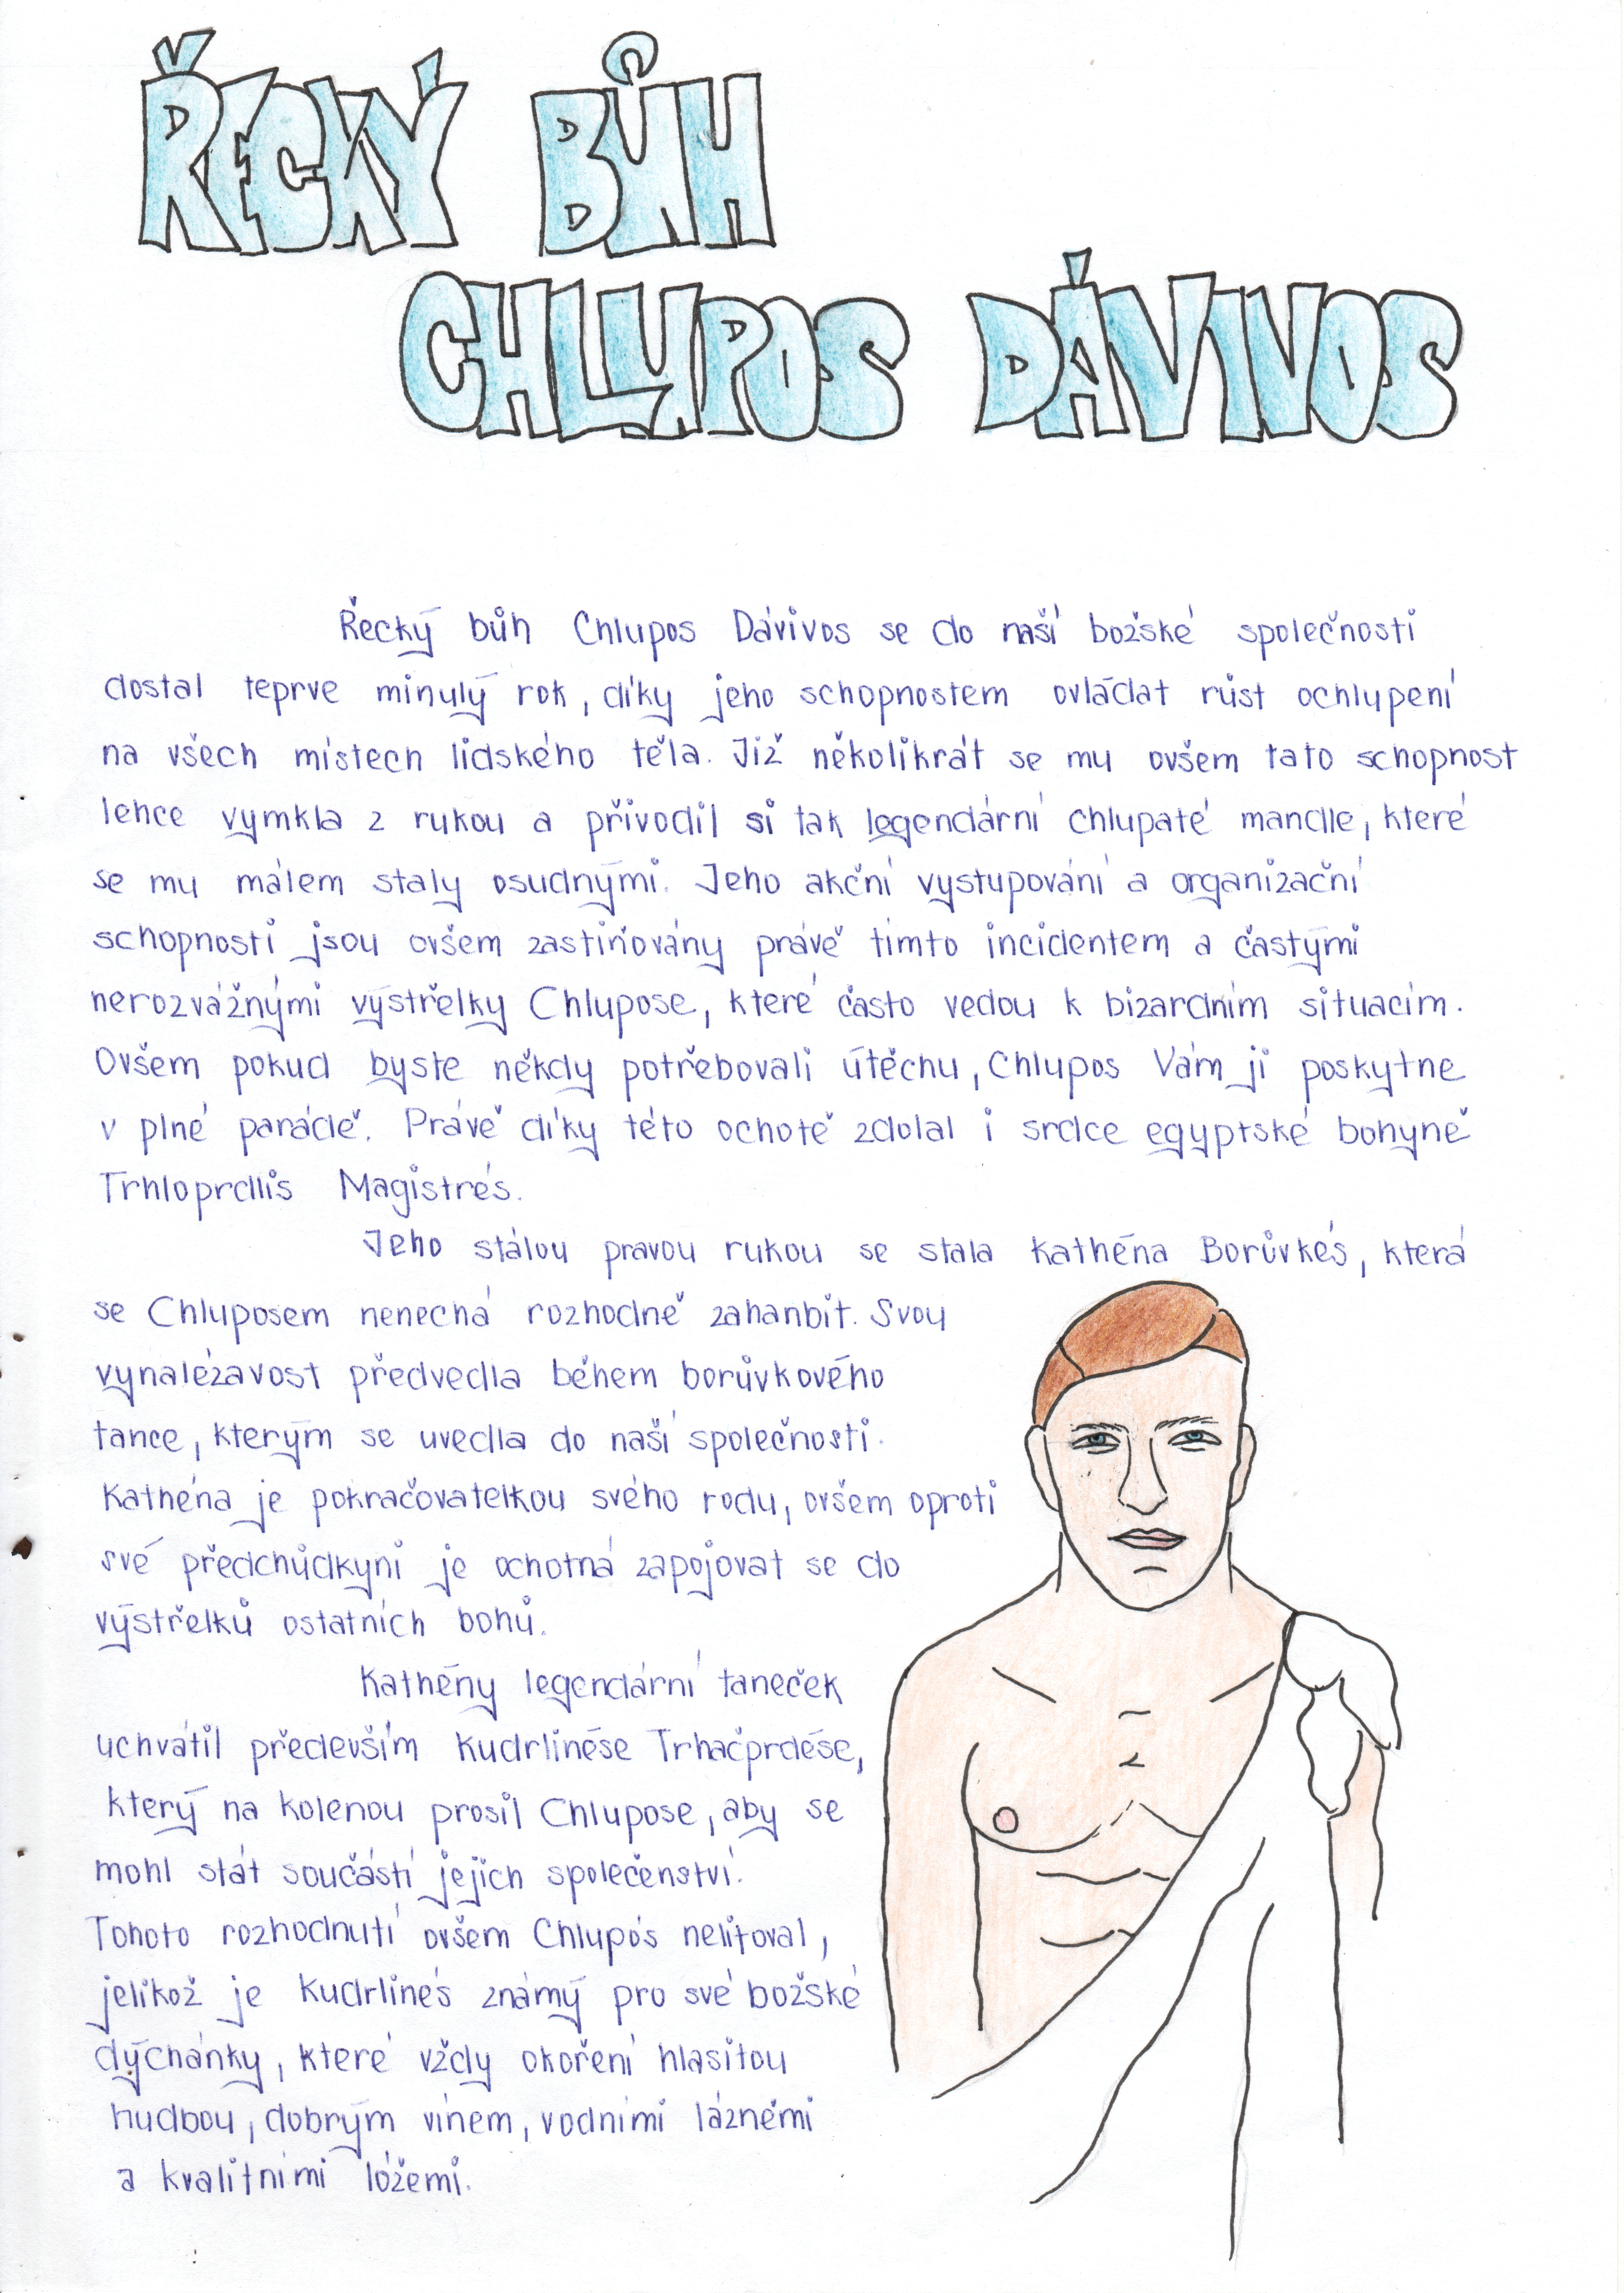 ŘECKÝ BŮH
CHLUPOS DÁVIVOS
Řecký bůh Chlupos Dávivos se do naší božské společnosti
dostal teprve minulý rok, díky jeho schopnostem ovládat růst ochlupení
na všech místech lidského těla. Již několikrát se mu ovšem tato schopnost
lehce vymkla z rukou a přivodil si tak legendární chlupaté mandle, které
se mu málem staly osudnými. Jeho akční vystupování a organizační
schopnosti jsou ovšem zastiňovány právě tímto incidentem a častými
nerozvážnými výstřelky Chlupose, které často vedou k bizardním situacím.
Ovšem pokud byste někdy potřebovali útěchu, Chlupos Vám ji poskytne
v plné parádě. Právě díky této ochotě zdolal i srdce egyptské bohyně
Trhloprdlis Magistrés.
Jeho stálou pravou rukou se stala Kathéna Borůvkés, která
se Chluposem nenechá rozhodně zahanbit. Svou
vynalézavost předvedla během borůvkového
tance, kterým se uvedla do naší společnosti.
Kathéna je pokračovatelkou svého rodu, ovšem oproti
své předchůdkyni je ochotná zapojovat se do
výstřelků ostatních bohů.
Kathény legendární taneček
uchvátil především Kudrlinése Trhačprdése,
který na kolenou prosil Chlupose, aby se
mohl stát součástí jejich společenství.
Tohoto rozhodnutí ovšem Chlupós nelitoval,
jelikož je Kudrlinés známý pro své božské
dýchánky, které vždy okoření hlasitou
hudbou, dobrým vínem, vodními lázněmi
a kvalitními lóžemi.